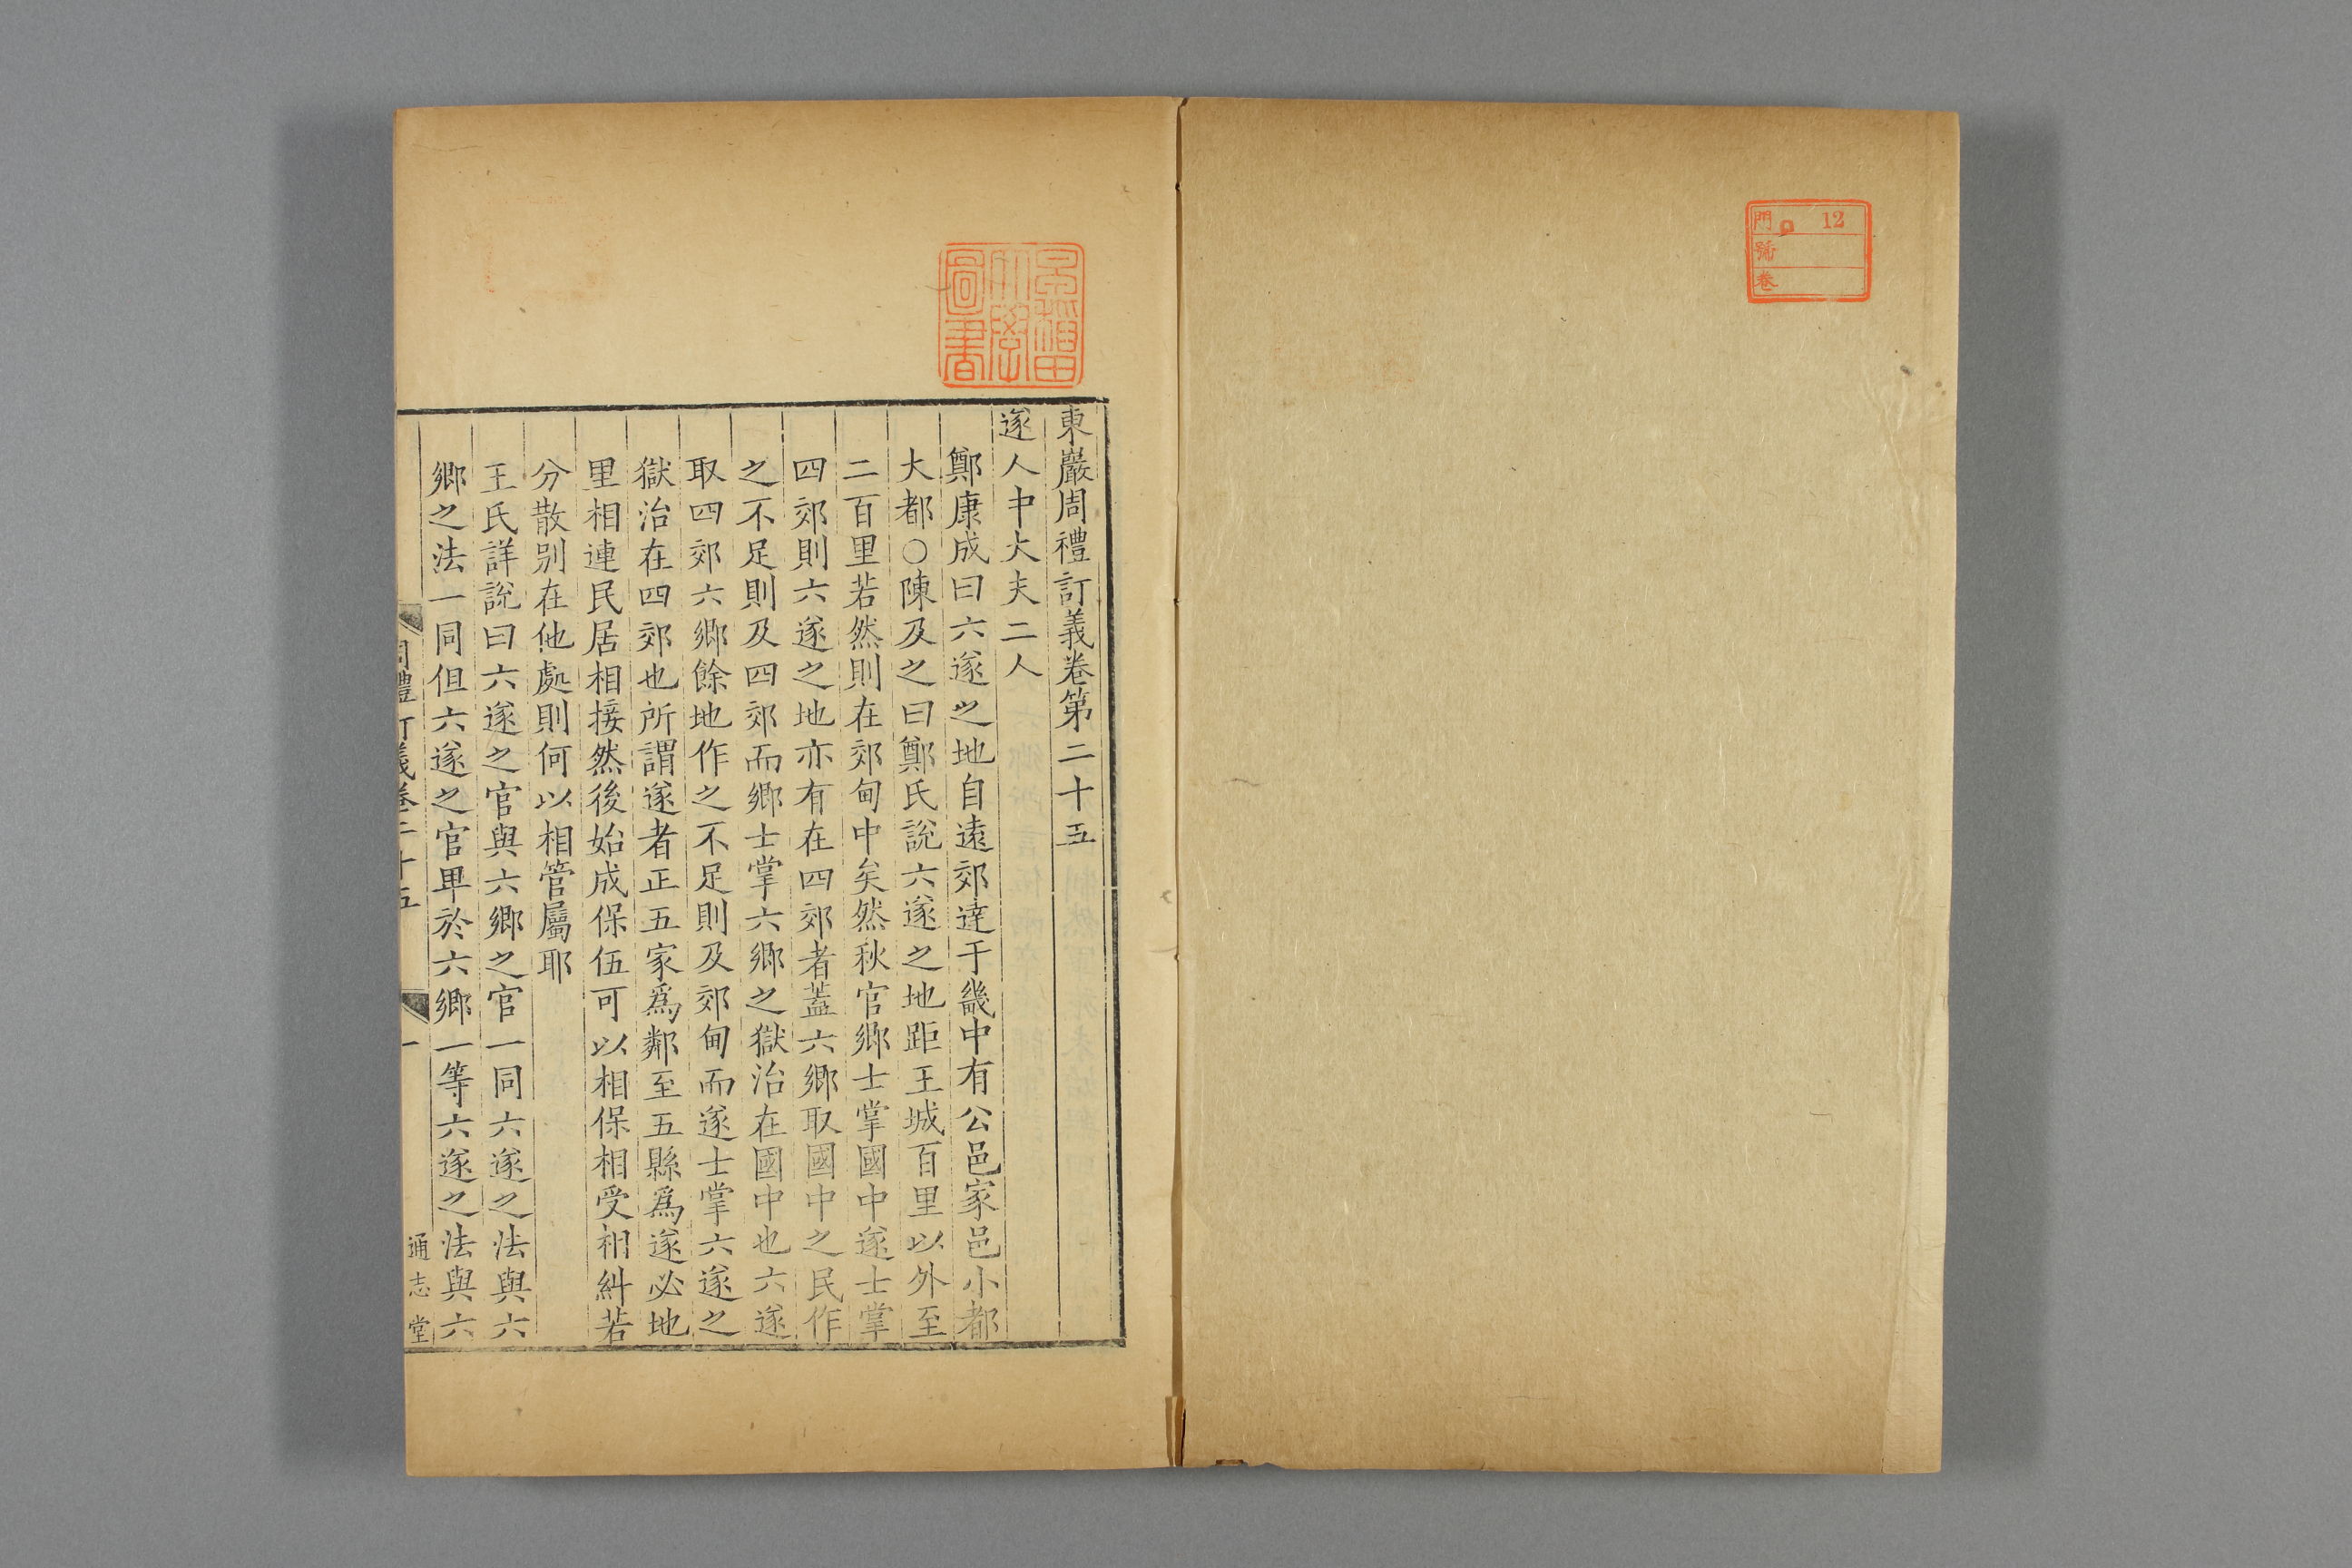 門 12
號
卷
早稲田
大學
圖書
東巖周禮訂義卷第二十五
遂人中大夫二人
鄭康成曰六遂之地自遠郊達于畿中有公邑家邑小都
大都○陳及之曰鄭氏說六遂之地距王城百里以外至
二百里若然則在郊甸中矣然秋官鄉士掌國中遂士掌
四郊則六遂之地亦有在四郊者蓋六鄉取國中之民作
之不足則及四郊而鄉士掌六鄉之獄治在國中也六遂
取四郊六鄉餘地作之不足則及郊甸而遂士掌六遂之
獄治在四郊也所謂遂者正五家爲鄰至五縣爲遂必地
里相連民居相接然後始成保伍可以相保相受相糾若
分散别在他處則何以相管屬耶
王氏詳說曰六遂之官與六鄉之官一同六遂之法與六
鄉之法一同但六遂之官卑於六鄉一等六遂之法與六
周禮訂義卷二十五 一 通志堂